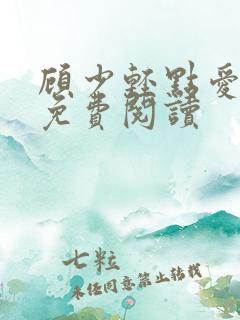 顧少輕點愛
免費閱讀
七粒
未经同意禁止转载